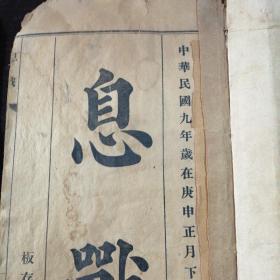 中華民國九年歲在庚申正月下
息戰
板存